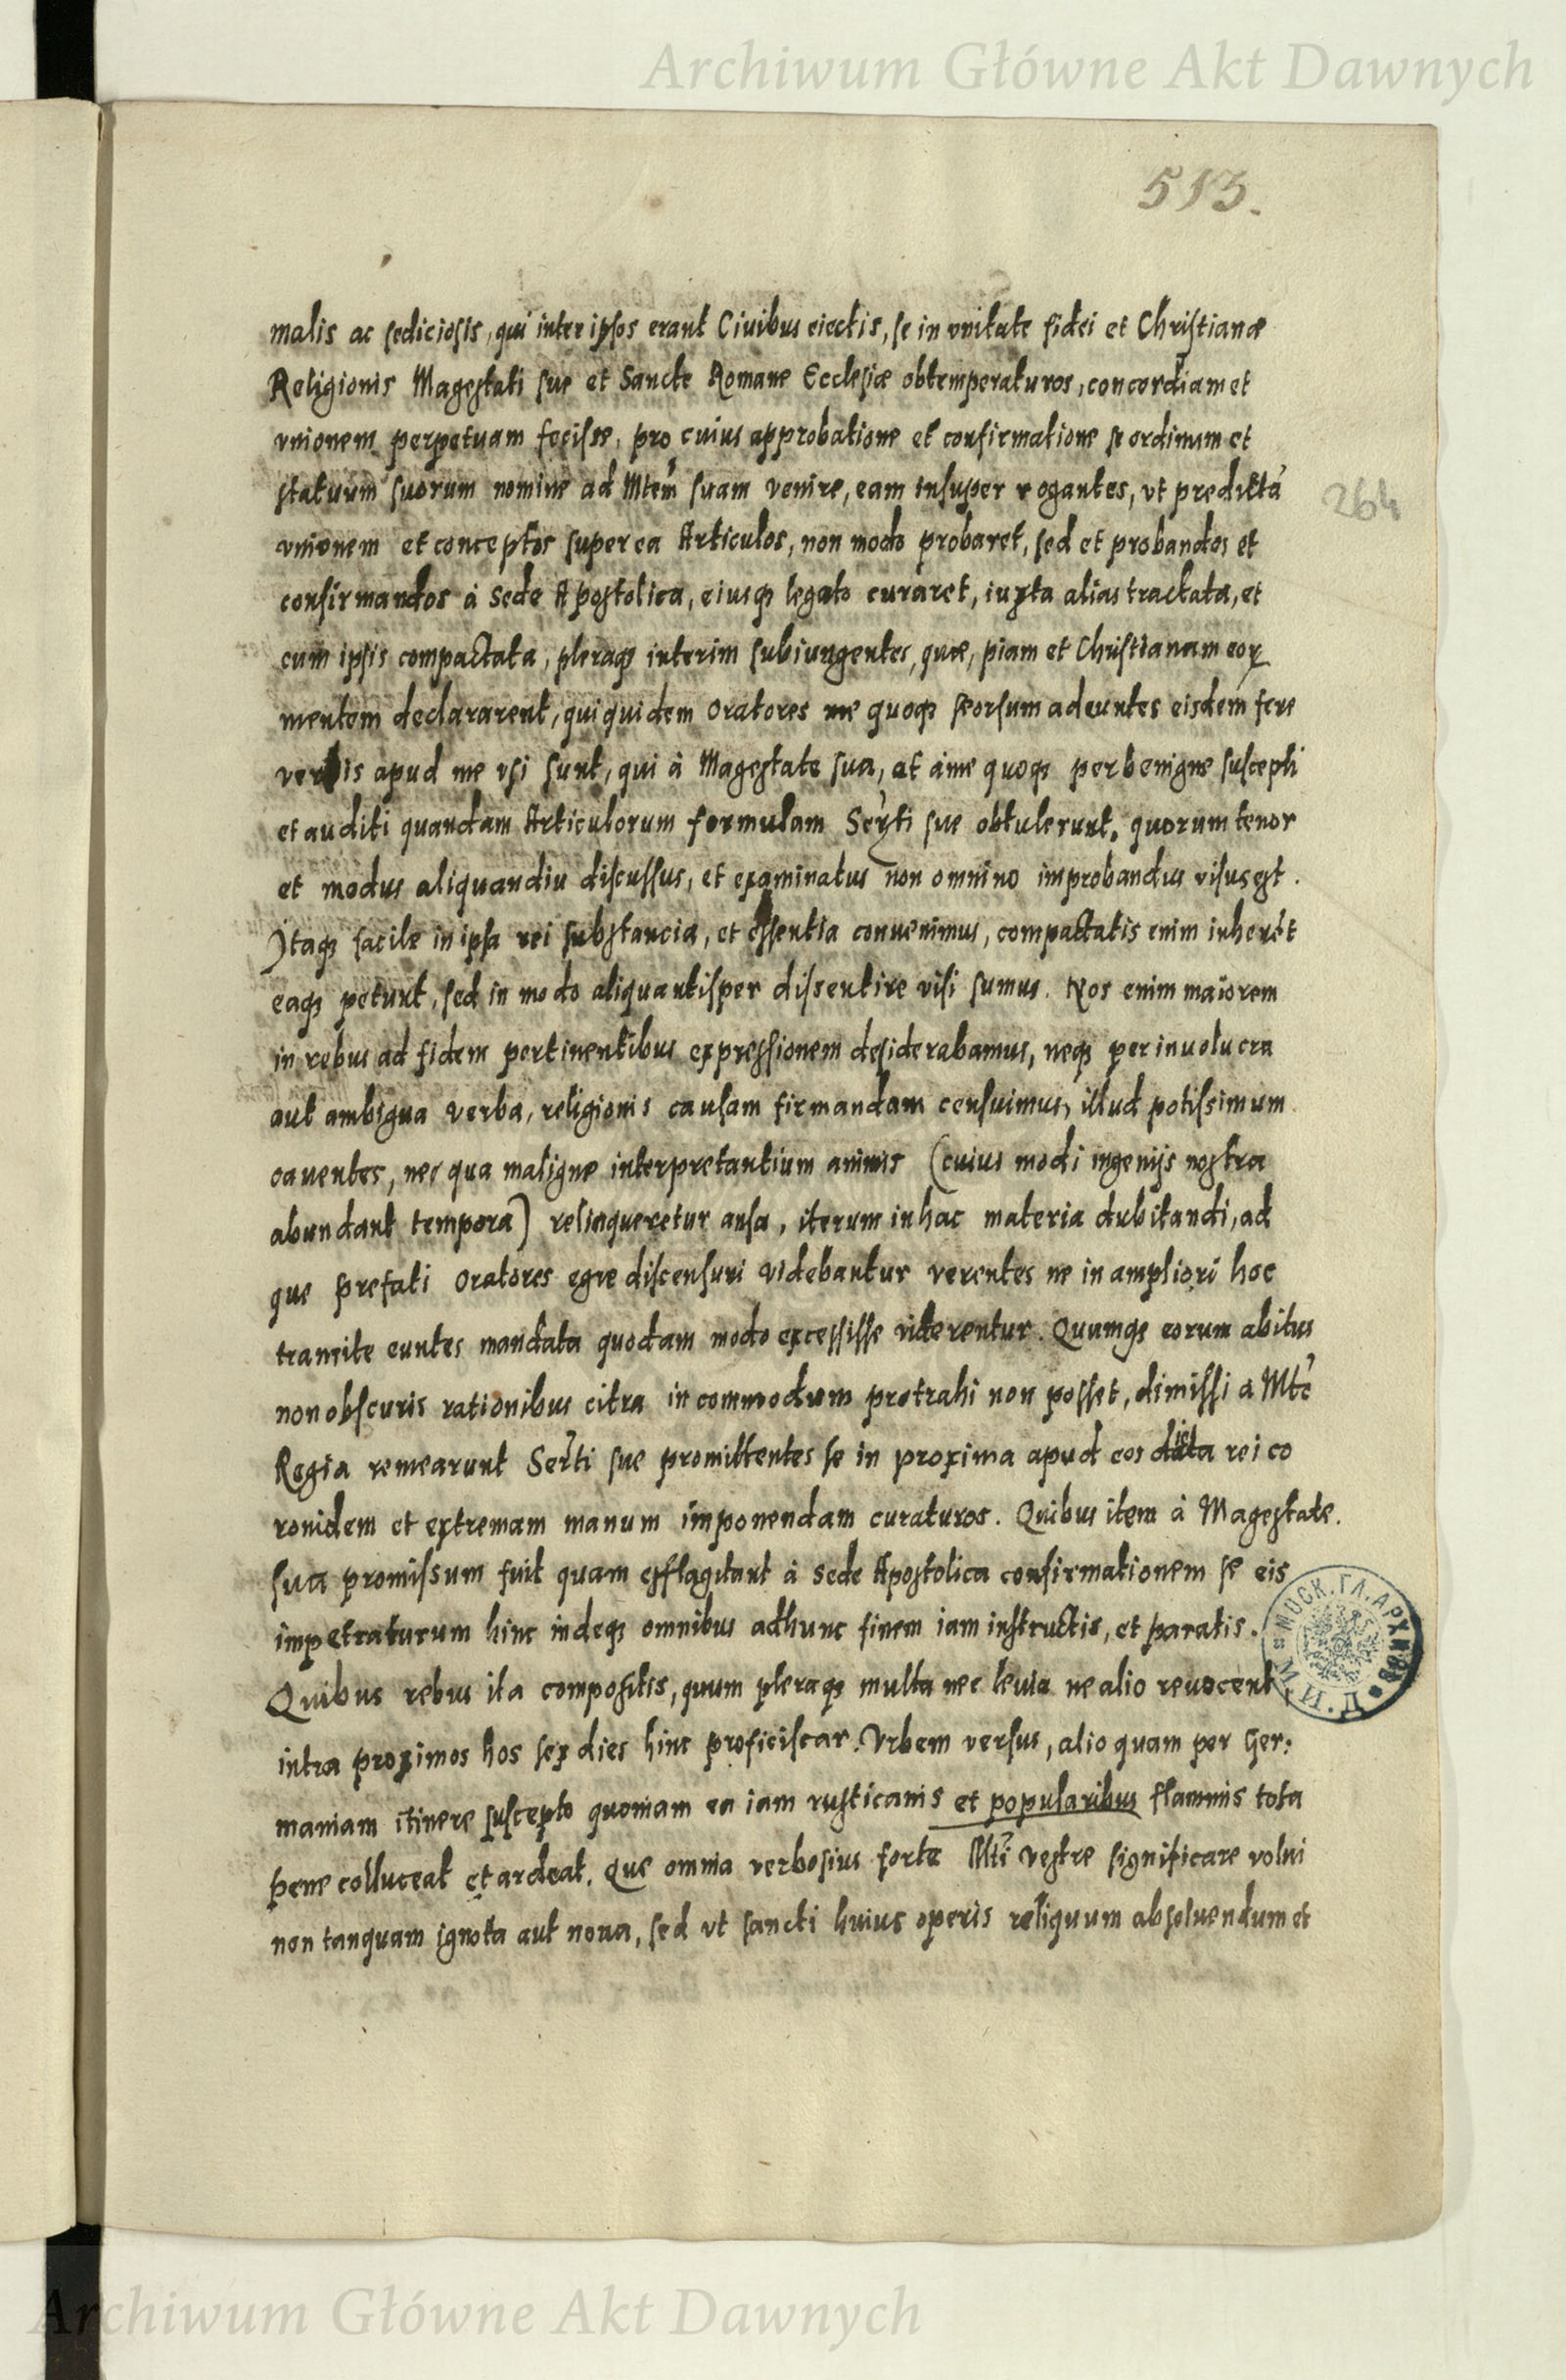 Archiwum Główne Akt Dawnych
513.
malis ac sediciosis, qui inter ipsos erant Ciuibus eiectis, se in vnitate fidei et Christianæ
Religionis Magestati sue et Sancte Romane Ecclesiæ obtemperaturos, concordiam et
vnionem perpetuam fecisse, pro cuius approbatione et confirmatione se ordinum et
statuum suorum nomine ad Mtem̃ suam venire, eam insuper rogantes, vt predictã
264
vnionem et conceptos super ea Articulos, non modo probaret, sed et probandos et
confirmandos à Sede Apostolica, eiusqꝫ legato curaret, iuxta alias tractata, et
cum ipsis compactata, pleraqꝫ interim subiungentes, quæ, piam et Christianam eoꝝ
mentem declararent, qui quidem Oratores me quoqꝫ seorsum adeuntes eisdem fere
verbis apud me vsi sunt, qui à Magestate sua, et à me quoqꝫ perbenigne suscepti
et auditi quandam Articulorum formulam Serti sue obtulerunt, quorum tenor
et modus aliquandiu discussus, et examinatus non omnino improbandus visus est.
Itaqꝫ facile in ipsa rei substancia, et essentia conuenimus, compactatis enim inherẽt
eaqꝫ petunt, sed in modo aliquantisper dissentire visi sumus. Nos enim maiorem
in rebus ad fidem pertinentibus expressionem desiderabamus, neqꝫ per inuolucra
aut ambigua verba, religionis causam firmandam censuimus, illud potissimum
cauentes, nec qua maligne interpretantium animis (cuius modi ingenijs nostra
abundant tempora) relinqueretur ansa, iterum in hac materia dubitandi, ad
que prefati Oratores egre discensuri videbantur verentes ne in ampliori hoc
tramite euntes mandata quodam modo excessisse viderentur. Quumqꝫ eorum abitus
non obscuris rationibus citra incommodum protrahi non posset, dimissi a Mte
Regia remearunt Serti sue promittentes se in proxima apud eos dieta rei co
ronidem et extremam manum imponendam curaturos. Quibus item à Magestate.
sua promissum fuit quam efflagitant à Sede Apostolica confirmationem se eis
impetraturum hinc indeqꝫ omnibus ad hunc finem iam instructis, et paratis.
Quibus rebus ita compositis, quum pleraqꝫ multa nec leuia me alio reuocent
intra proximos hos sex dies hinc proficiscar Vrbem versus, alio quam per Ger:
maniam itinere suscepto quoniam ea iam rusticanis et popularibus flammis tota
pene colluceat et ardeat. Que omnia verbosius forte Mti Vestre significare volui
non tanquam ignota aut noua, sed vt sancti huius operis reliquum absoluendum et
М.Г.А.М.И.Д. МОСК. ГЛ. АРХИВЪ
Archiwum Główne Akt Dawnych